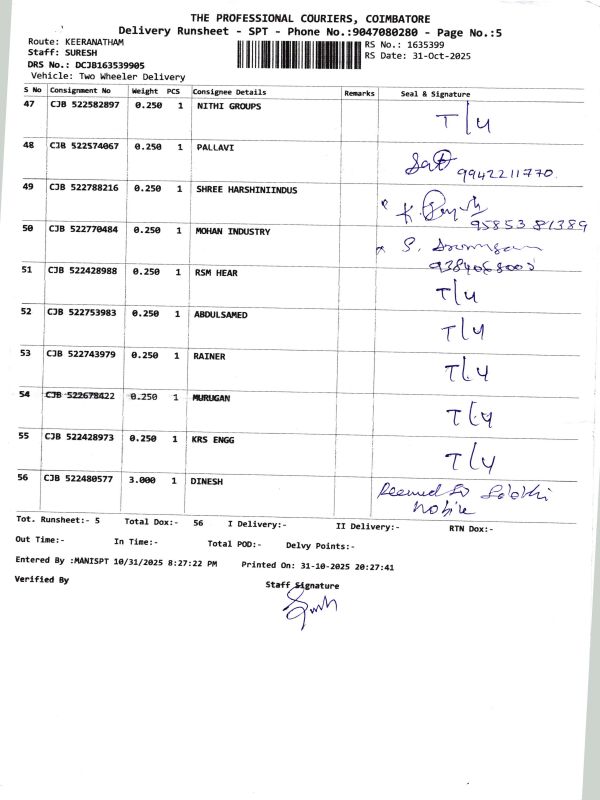 THE PROFESSIONAL COURIERS, COIMBATORE
Delivery Runsheet - SPT - Phone No.:9047080280 - Page No.:5
Route: KEERANATHAM
RS No.: 1635399
Staff: SURESH
RS Date: 31-Oct-2025
DRS No.: DCJB163539905
Vehicle: Two Wheeler Delivery
S No Consignment No Weight PCS Consignee Details Remarks Seal & Signature
47 CJB 522582897 0.250 1 NITHI GROUPS T/4
48 CJB 522574067 0.250 1 PALLAVI 9942211770
49 CJB 522788216 0.250 1 SHREE HARSHINIINDUS K. 9585381389
50 CJB 522770484 0.250 1 MOHAN INDUSTRY S. 9384068005
51 CJB 522428988 0.250 1 RSM HEAR T/4
52 CJB 522753983 0.250 1 ABDULSAMED T/4
53 CJB 522743979 0.250 1 RAINER T/4
54 CJB 522678422 0.250 1 MURUGAN T/4
55 CJB 522428973 0.250 1 KRS ENGG T/4
56 CJB 522480577 3.000 1 DINESH
Tot. Runsheet:- 5 Total Dox:- 56 I Delivery:- II Delivery:- RTN Dox:-
Out Time:- In Time:- Total POD:- Delvy Points:-
Entered By :MANISPT 10/31/2025 8:27:22 PM Printed On: 31-10-2025 20:27:41
Verified By Staff Signature